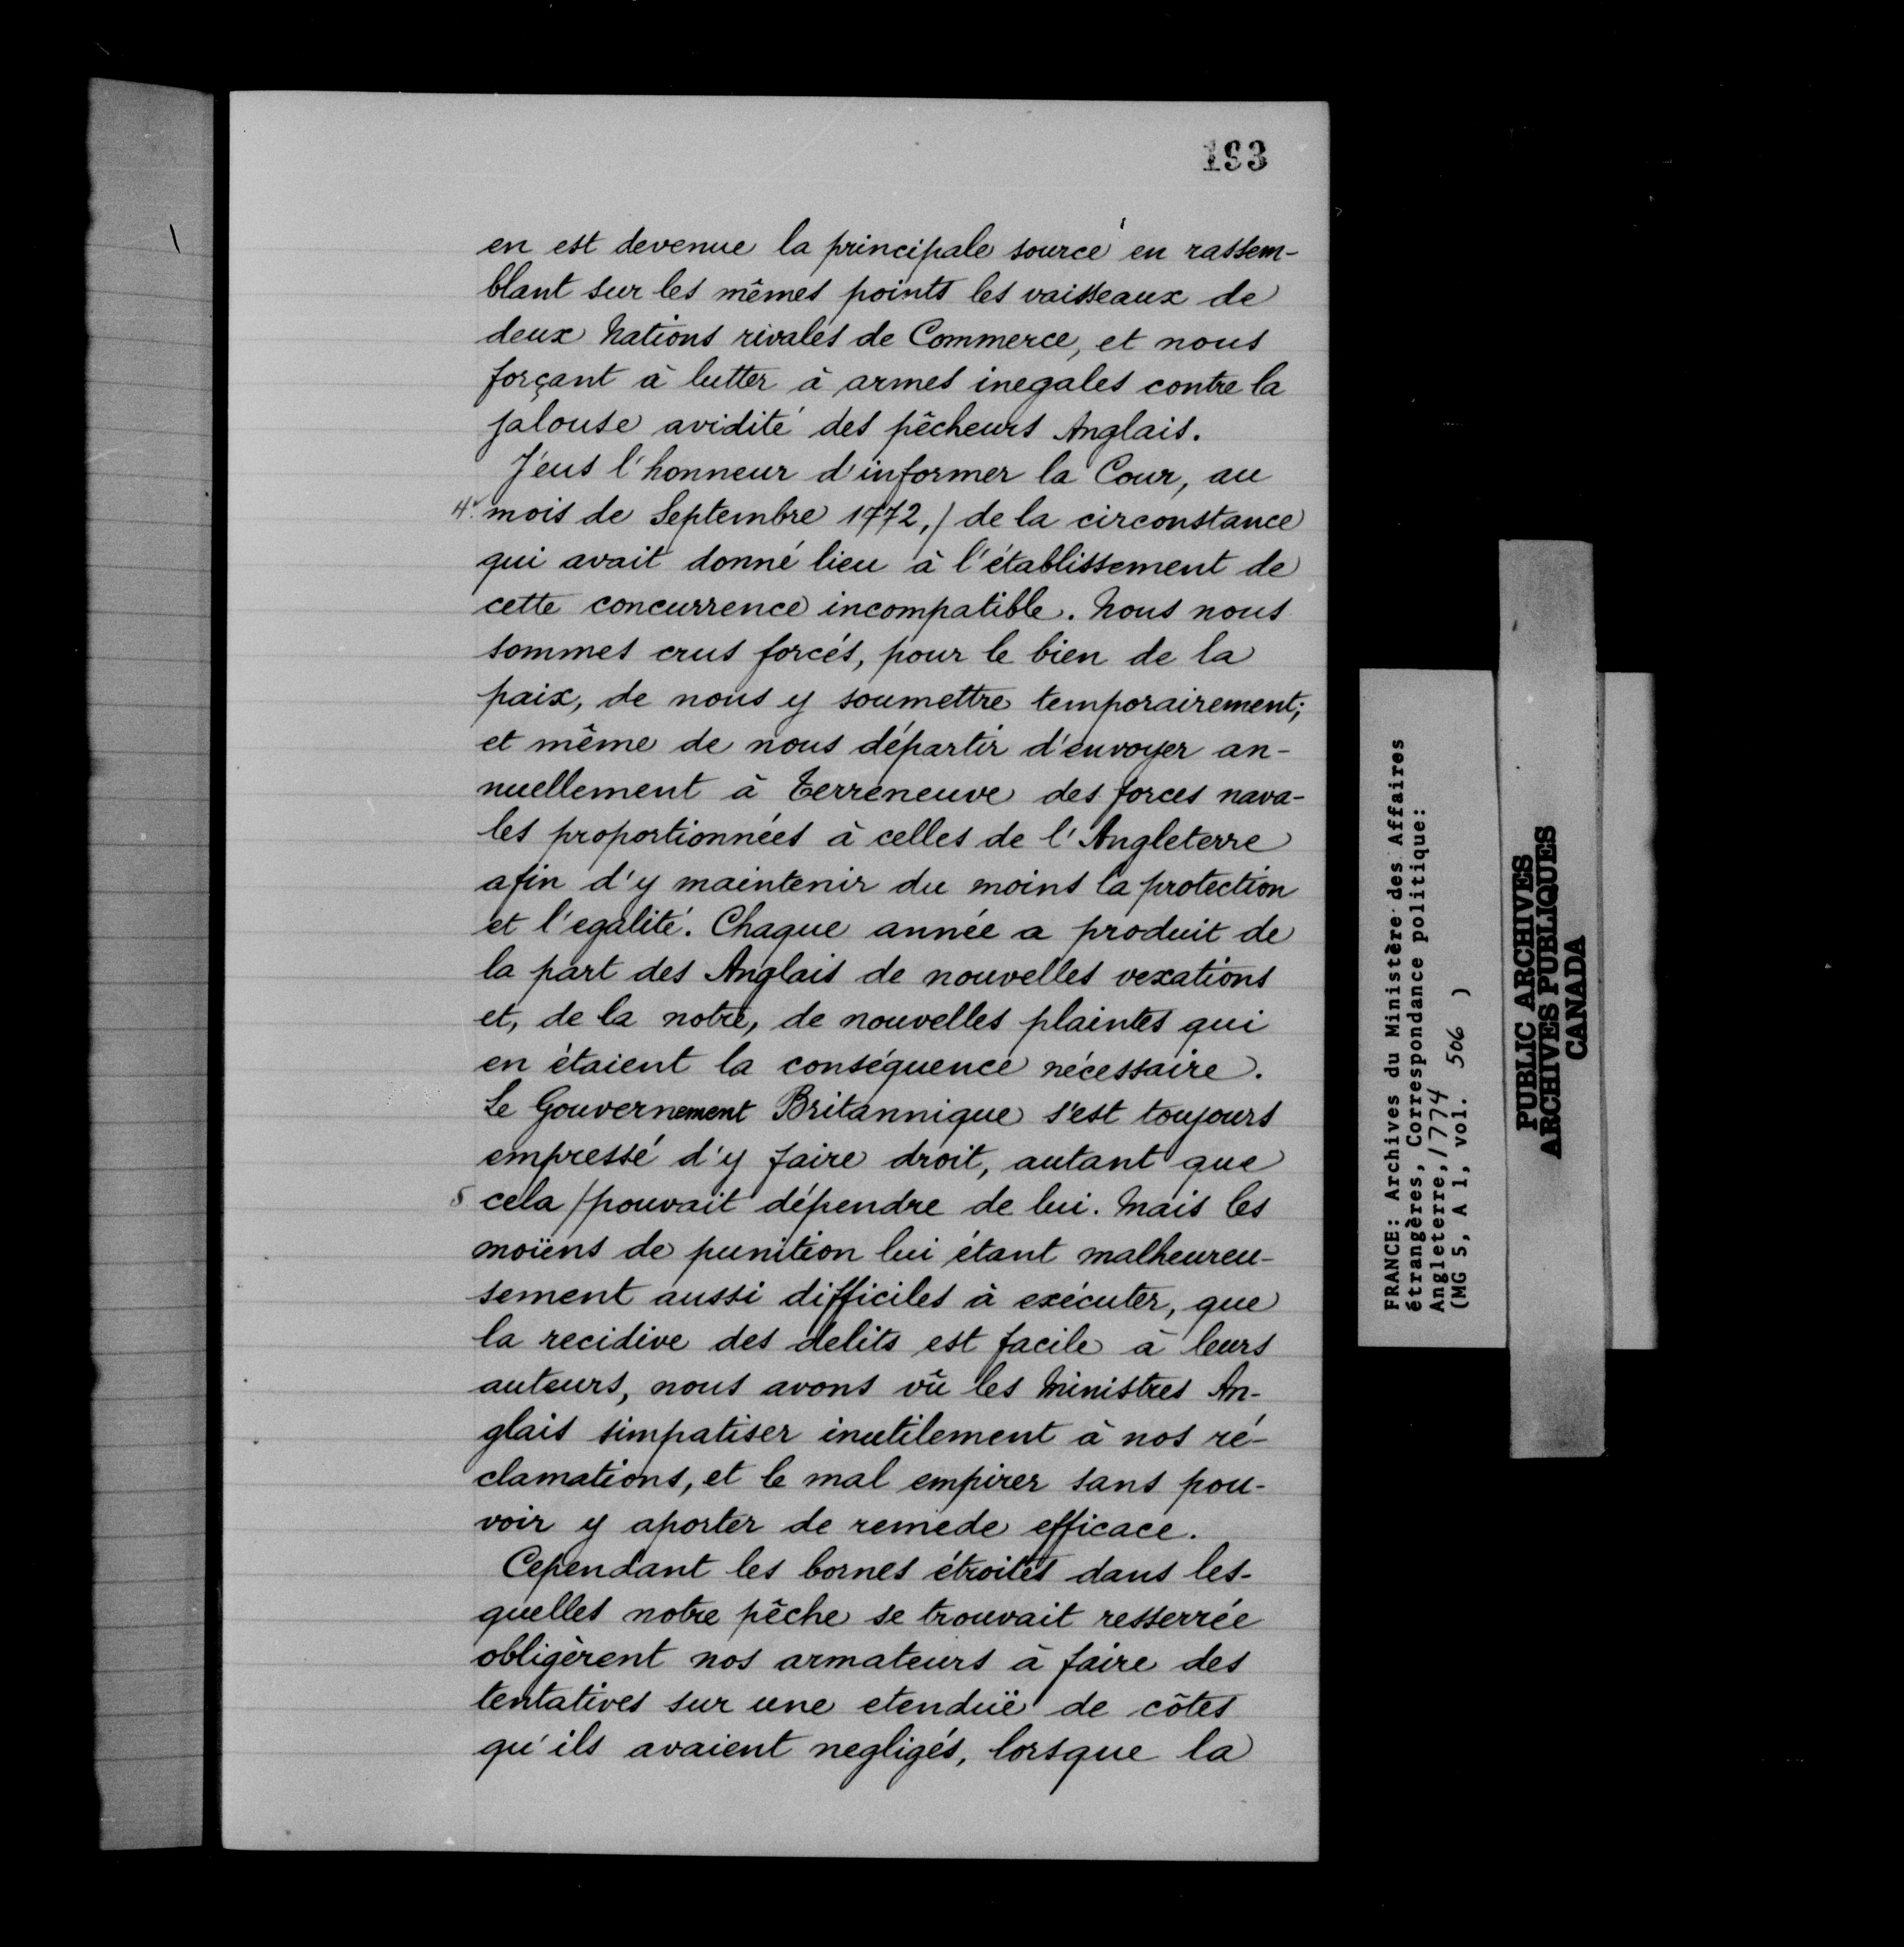 193
en est devenue la principale source en rassem-
blant sur les mêmes points les vaisseaux de
deux Nations rivales de Commerce, et nous
forçant à lutter à armes inegales contre la
jalouse avidité des pêcheurs Anglais.
J'eus l'honneur d'informer la Cour, au
4. mois de Septembre 1772,/ de la circonstance
qui avait donné lieu à l'établissement de
cette concurrence incompatible. Nous nous
sommes crus forcés, pour le bien de la
paix, de nous y soumettre temporairement;
et même de nous départir d'envoyer an-
nuellement à Terreneuve des forces nava-
les proportionnées à celles de l'Angleterre
afin d'y maintenir du moins la protection
et l'egalité. Chaque année a produit de
la part des Anglais de nouvelles vexations
et, de la notre, de nouvelles plaintes qui
en étaient la conséquence nécessaire.
Le Gouvernement Britannique s'est toujours
empressé d'y faire droit, autant que
5 cela /pouvait dépendre de lui. Mais les
moïens de punition lui étant malheureu-
sement aussi difficiles à exécuter, que
la recidive des delits est facile à leurs
auteurs, nous avons vû les Ministres An-
glais simpatiser inutilement à nos ré-
clamations, et le mal empirer sans pou-
voir y aporter de remede efficace.
Cependant les bornes étroites dans les-
quelles notre pêche se trouvait resserrée
obligèrent nos armateurs à faire des
tentatives sur une etenduë de côtes
qu'ils avaient negligés, lorsque la
FRANCE: Archives du Ministère des Affaires
étrangères, Correspondance politique:
Angleterre, 1774
(MG 5, A 1, vol. 506 )
PUBLIC ARCHIVES
ARCHIVES PUBLIQUES
CANADA